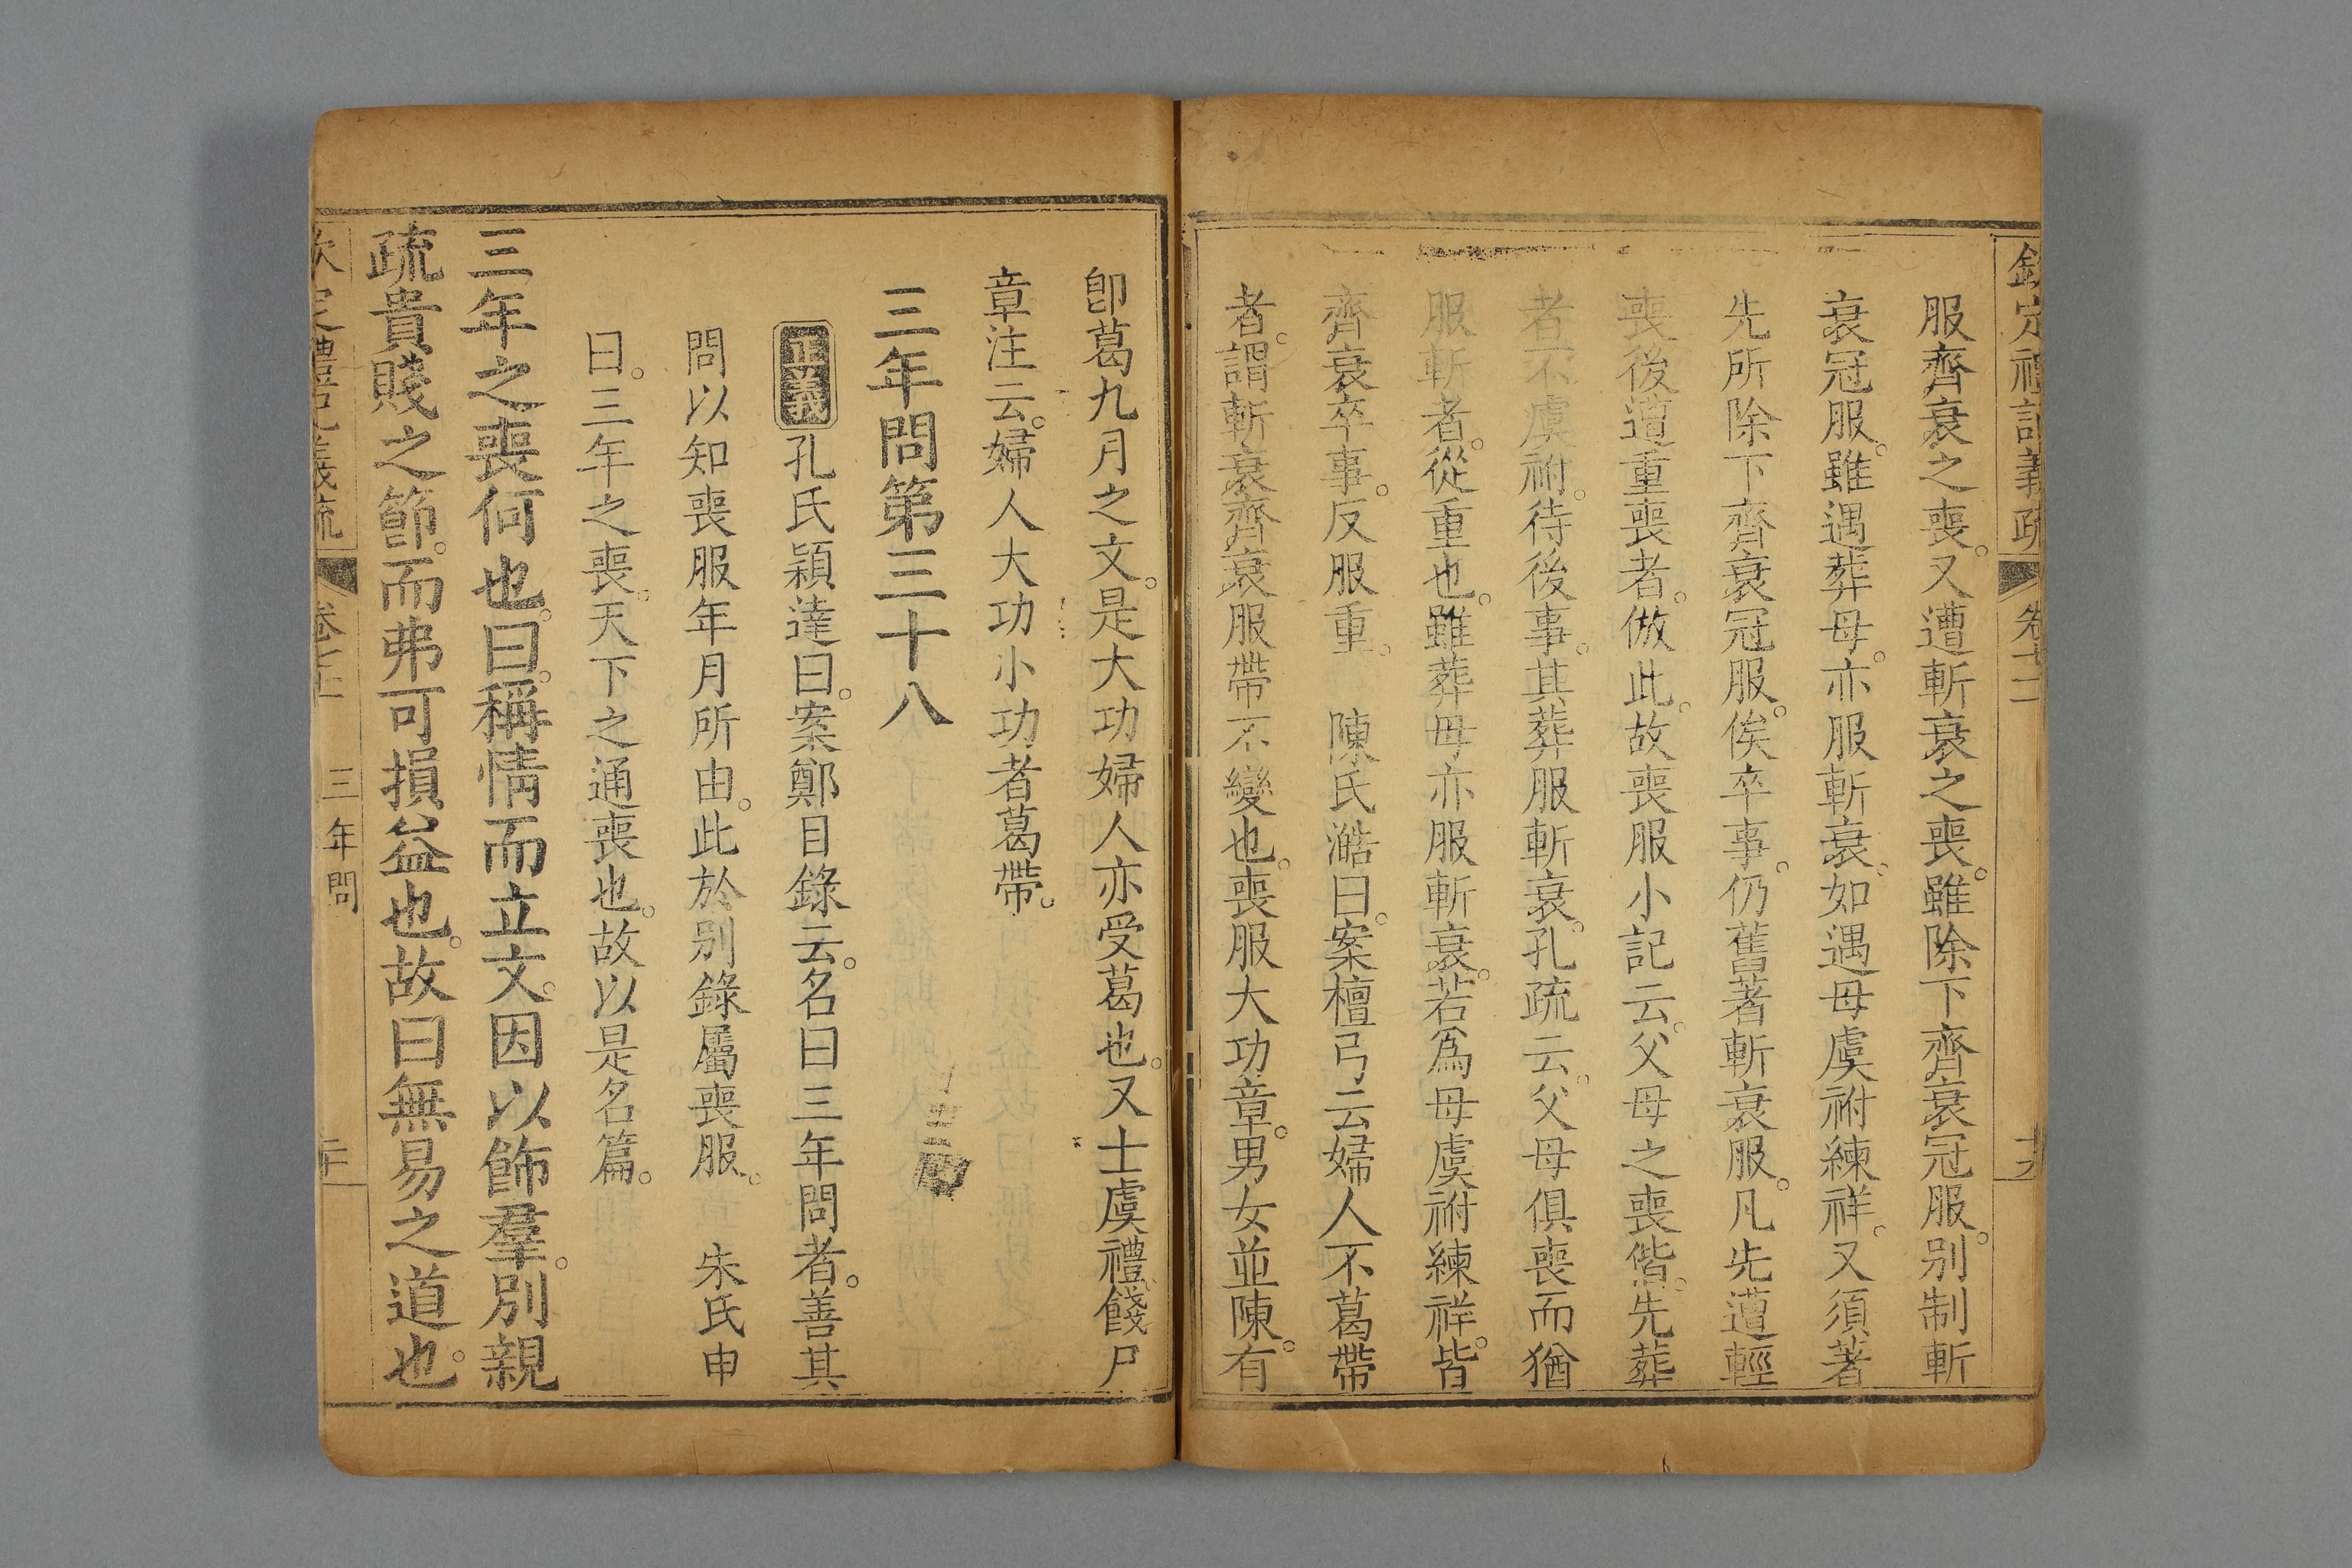 欽定禮記義疏 卷七十二
服齊衰之喪。又遭斬衰之喪。雖除下齊衰冠服。别制斬
衰冠服。雖遇葬母。亦服斬衰。如遇母虞祔練祥。又須著
先所除下齊衰冠服。俟卒事。仍舊著斬衰服。凡先遭輕
喪後遭重喪者。倣此。故喪服小記云。父母之喪偕。先葬
者不虞祔。待後事。其葬服斬衰。孔疏云。父母俱喪而猶
服斬者。從重也。雖葬母亦服斬衰。若爲母虞祔練祥。皆
齊衰卒事。反服重。 陳氏澔曰。案檀弓云婦人不葛帶
者。謂斬衰齊衰服帶不變也。喪服大功章。男女並陳。有
卽葛九月之文。是大功婦人亦受葛也。又士虞禮餞尸
章注云。婦人大功小功者葛帶。
三年問第三十八
正義 孔氏穎達曰。案鄭目錄云。名曰三年問者。善其
問以知喪服年月所由。此於别錄屬喪服。 朱氏申
曰。三年之喪。天下之通喪也。故以是名篇。
三年之喪何也。曰。稱情而立文。因以飾羣。别親
疏貴賤之節。而弗可損益也。故曰無易之道也。
三年問